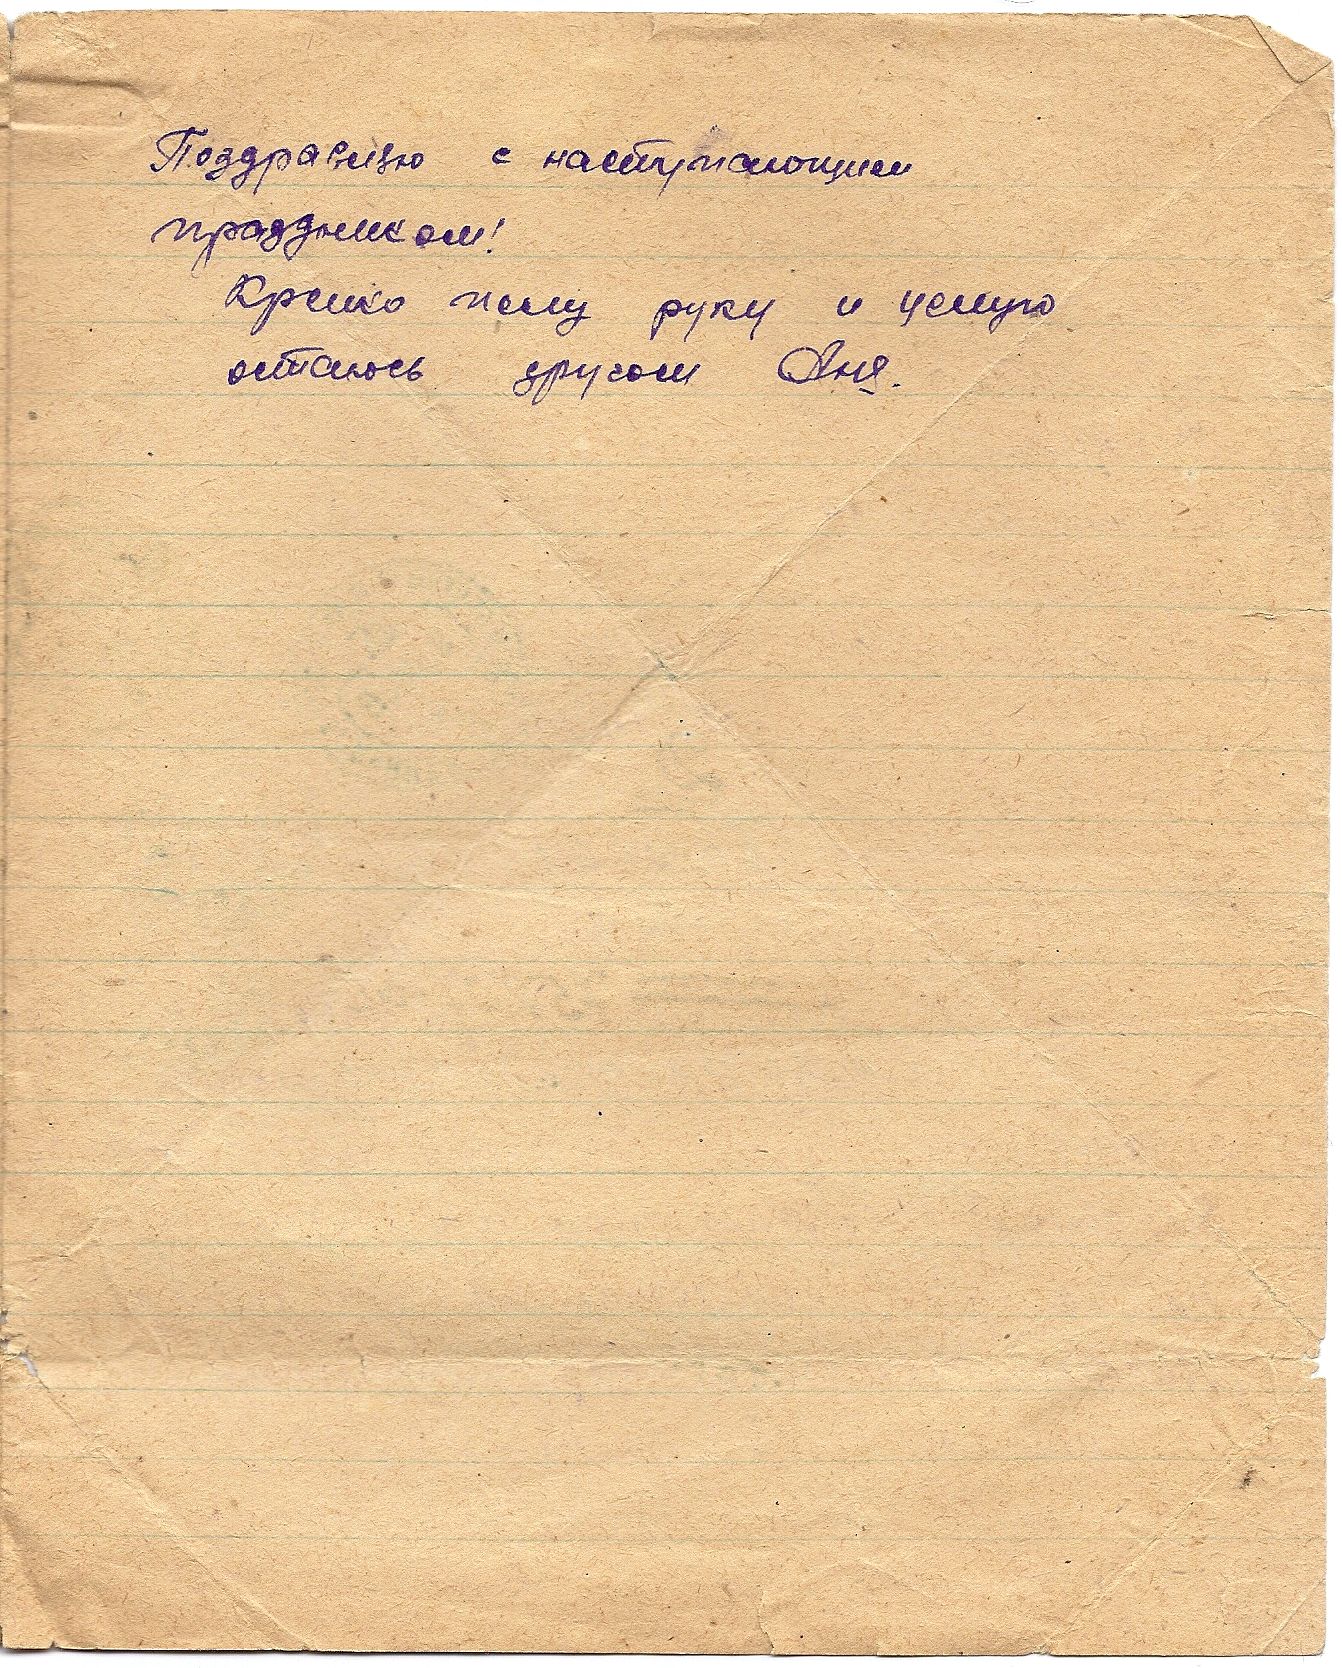 Поздравляю с наступающим
праздником!
Крепко жму руку и целую
остаюсь другом Аня.